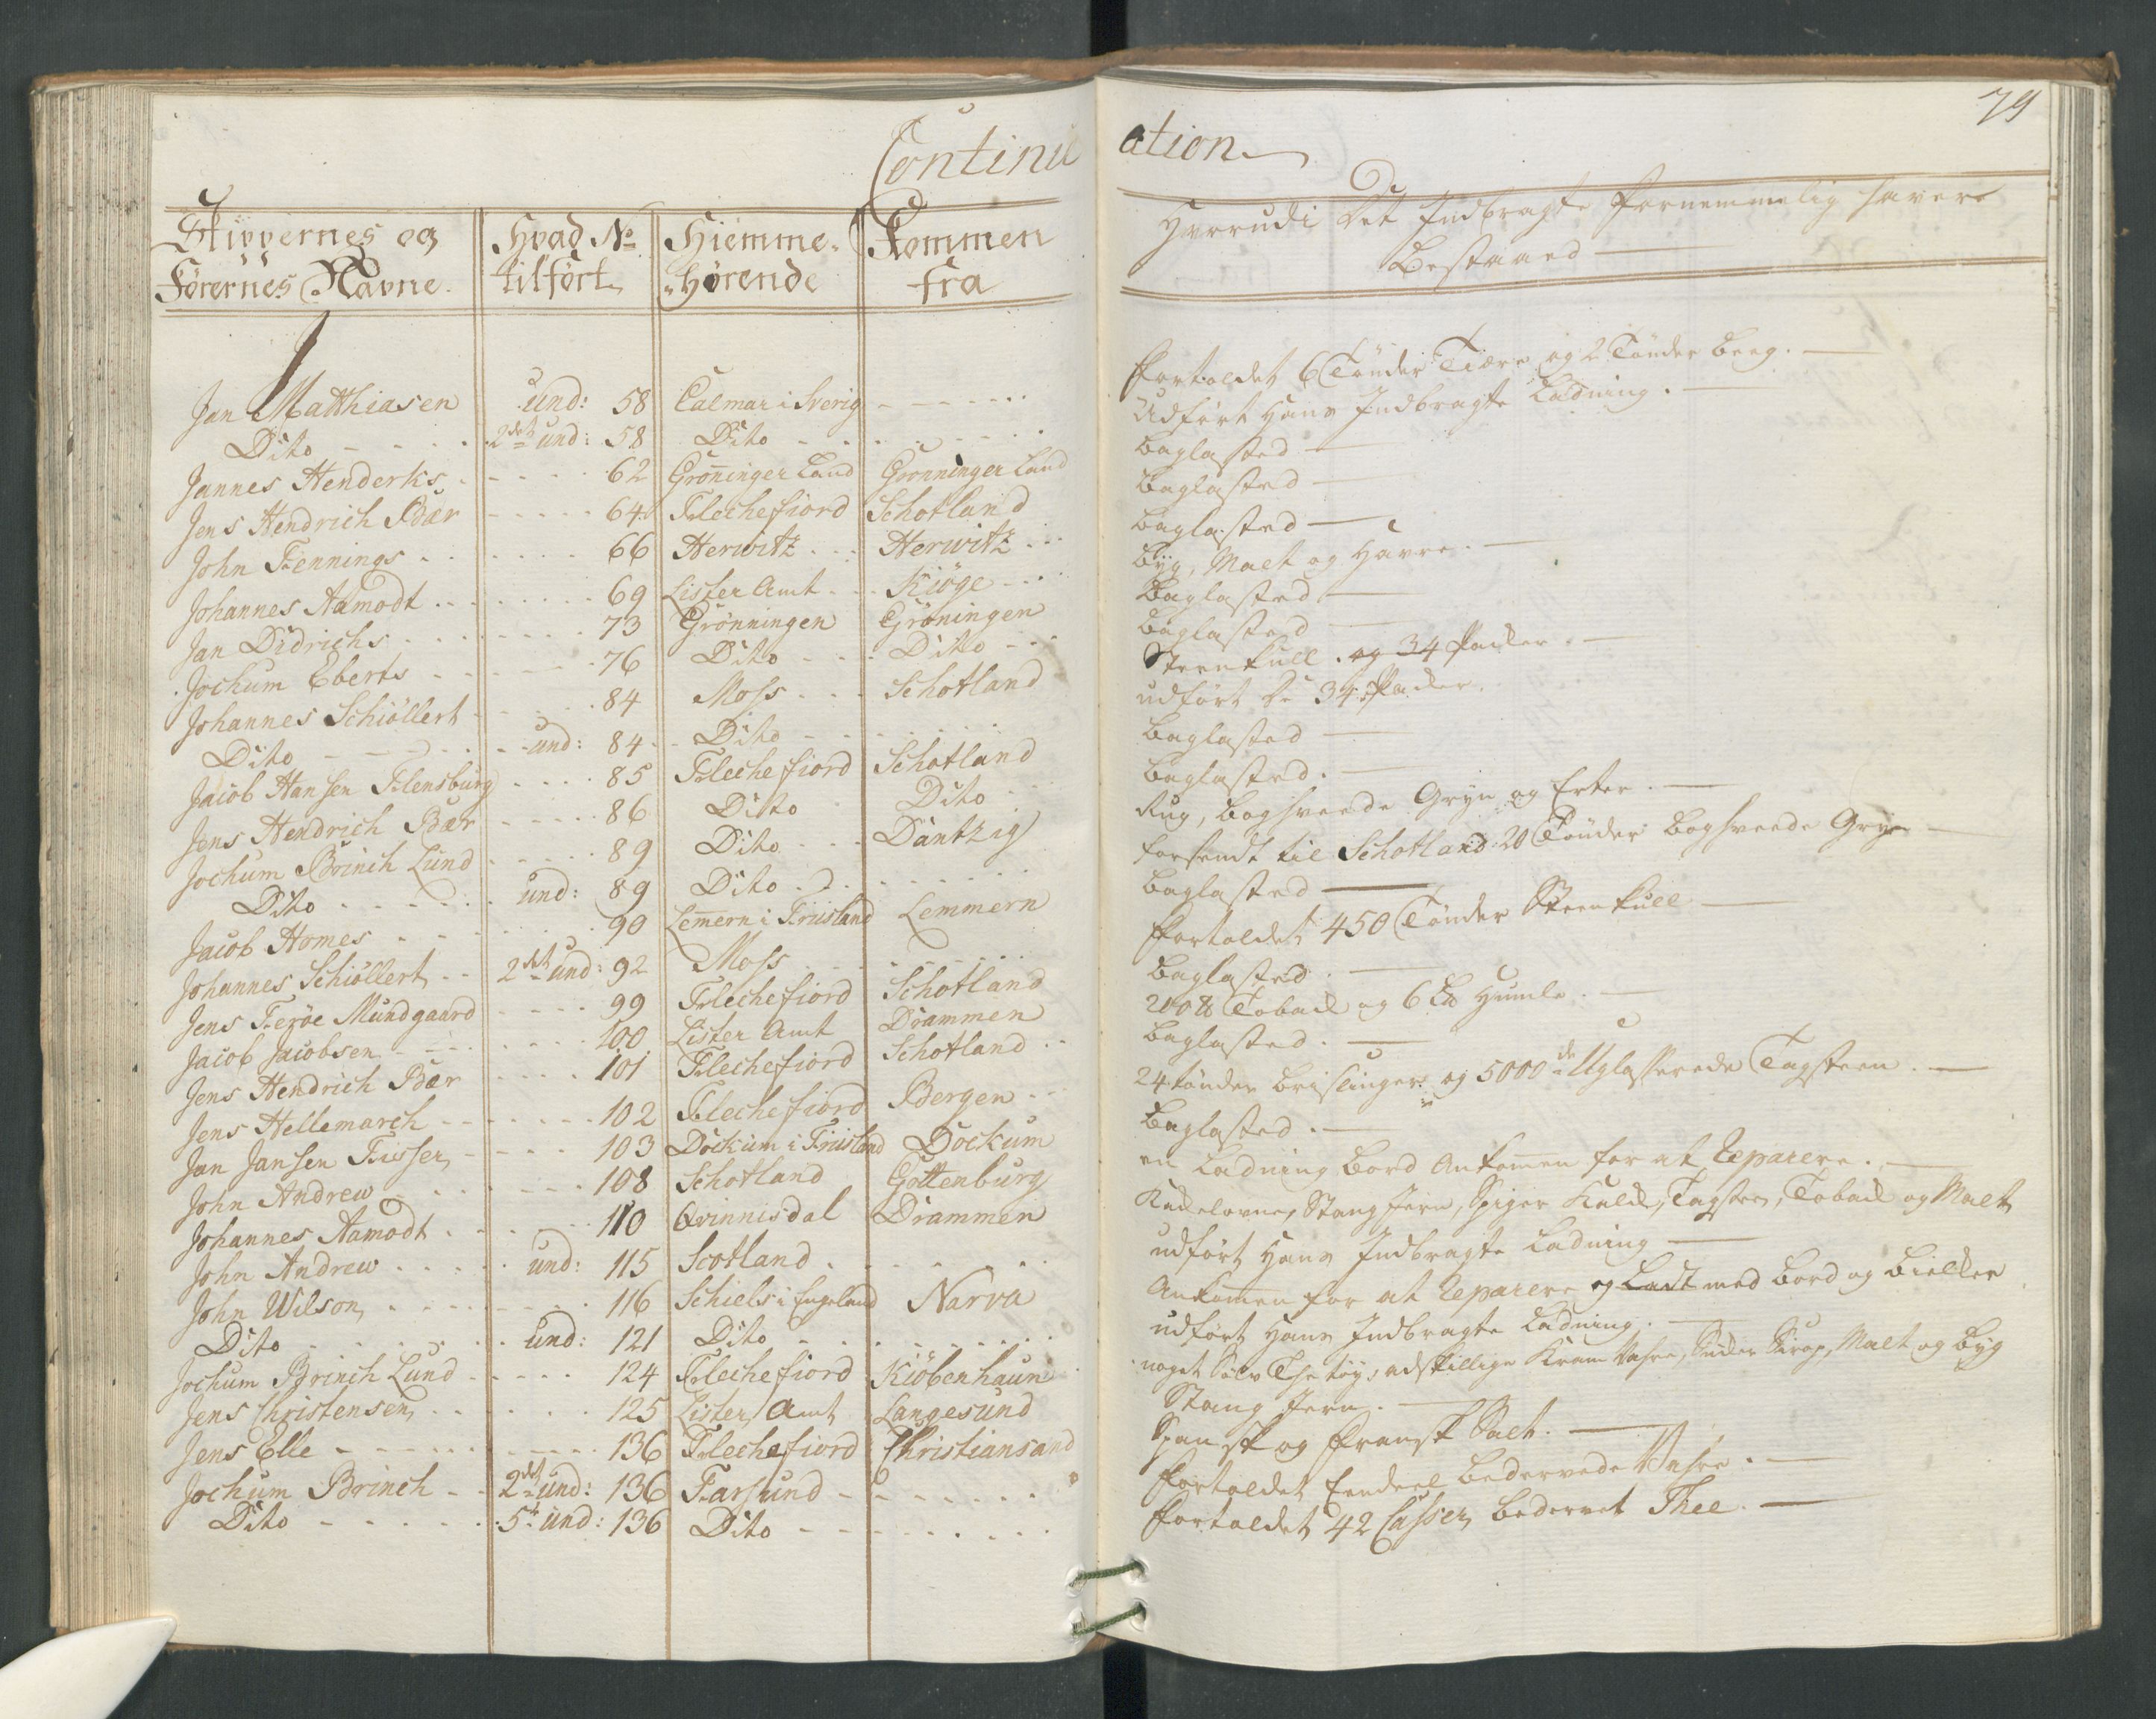 Continu ation
79
Skippernes og Førernes Navne. Hvad No tilført Hiemme- hørende Kommen fra Hvorudi Det Indbragte fornemmelig haver Bestaaed
J
Jan Matthiasen und: 58 Calmar i Sverig fortoldet 6 Tönder Tiære og 2 Tönder beeg.
Dito 2det und: 58 Dito Udført Hans Indbragte Ladning.
Jannes Henderks 62 Gronninger Land Gronninger Land baglasted
Jens Hendrich Bær 64 Flechefiord Schotland baglasted
John Fennings 66 Herwitz Herwitz baglasted
Johannes Aamodt 69 Lister Amt Kiöge byg, Malt og Havre.
Jan Didrichs 73 Grönningen Gröningen Baglasted
Jochum Eberts 76 Dito Dito baglasted
Johannes Schiöllert 84 Moss Schotland Steenkull og 34 Packer.
Dito und: 84 Dito udført De 34 Packer.
Jacob Hansen Flensburg 85 Flechefiord Schotland baglasted
Jens Hendrich Bær 86 Dito Dito baglasted.
Jochum Brinch Lund 89 Dito Dantzig Rug, boghveede Gryn og Erter.
Dito und: 89 Dito forsendt til Schotland 20 Tönder boghveede Gryn
Jacob Homes 90 Lemern i Friisland Lemmern baglasted
Johannes Schiöllert 2det und: 92 Moss fortoldet 450 Tönder Steenkull
Jens Feröe Mundgaard 99 Flechefiord Schotland baglasted.
Jacob Jacobsen 100 Lister Amt Drammen Tobak og 6 Humle.
Jens Hendrich Bær 101 Flechefiord Schotland baglasted.
Jens Hellemarch 102 Flechefiord Bergen 24 tönder brislinger og 5000de Uglasserede Tagsteen.
Jan Jansen Fisser 103 Dockum i Friisland Dockum baglasted.
John Andrew 108 Schotland Gottenburg en Ladning bord Ankomen for at Reparere.
Johannes Aamodt 110 Qvinnisdal Drammen Kakelovne, Stang Jern, Spiger, Tagsteen, Tobak og Malt
John Andrew und: 115 Scotland udført Hans Indbragte Ladning
John Wilson 116 Schiels i Engeland Narva Ankomen for at Reparere og Last med bord og bielker
Dito und: 121 Dito udført Hans Indbragte Ladning.
Jochum Brinch Lund 124 Flechefiord Kiöbenhaun noget Sölv Thetöy, adskillige Kram Vahre, Suder Sirop, Malt og byg
Jens Christensen 125 Lister Amt Langesund Stang Jern.
Jens Elle 136 Flechefiord Christiansand Spansk og fransk Salt.
Jochum Brinch 2det und: 136 Farsund fortoldet Eendeel bedervede Vahre.
Dito 5te und: 136 Dito fortoldet 42 Casser bedervet Thee.